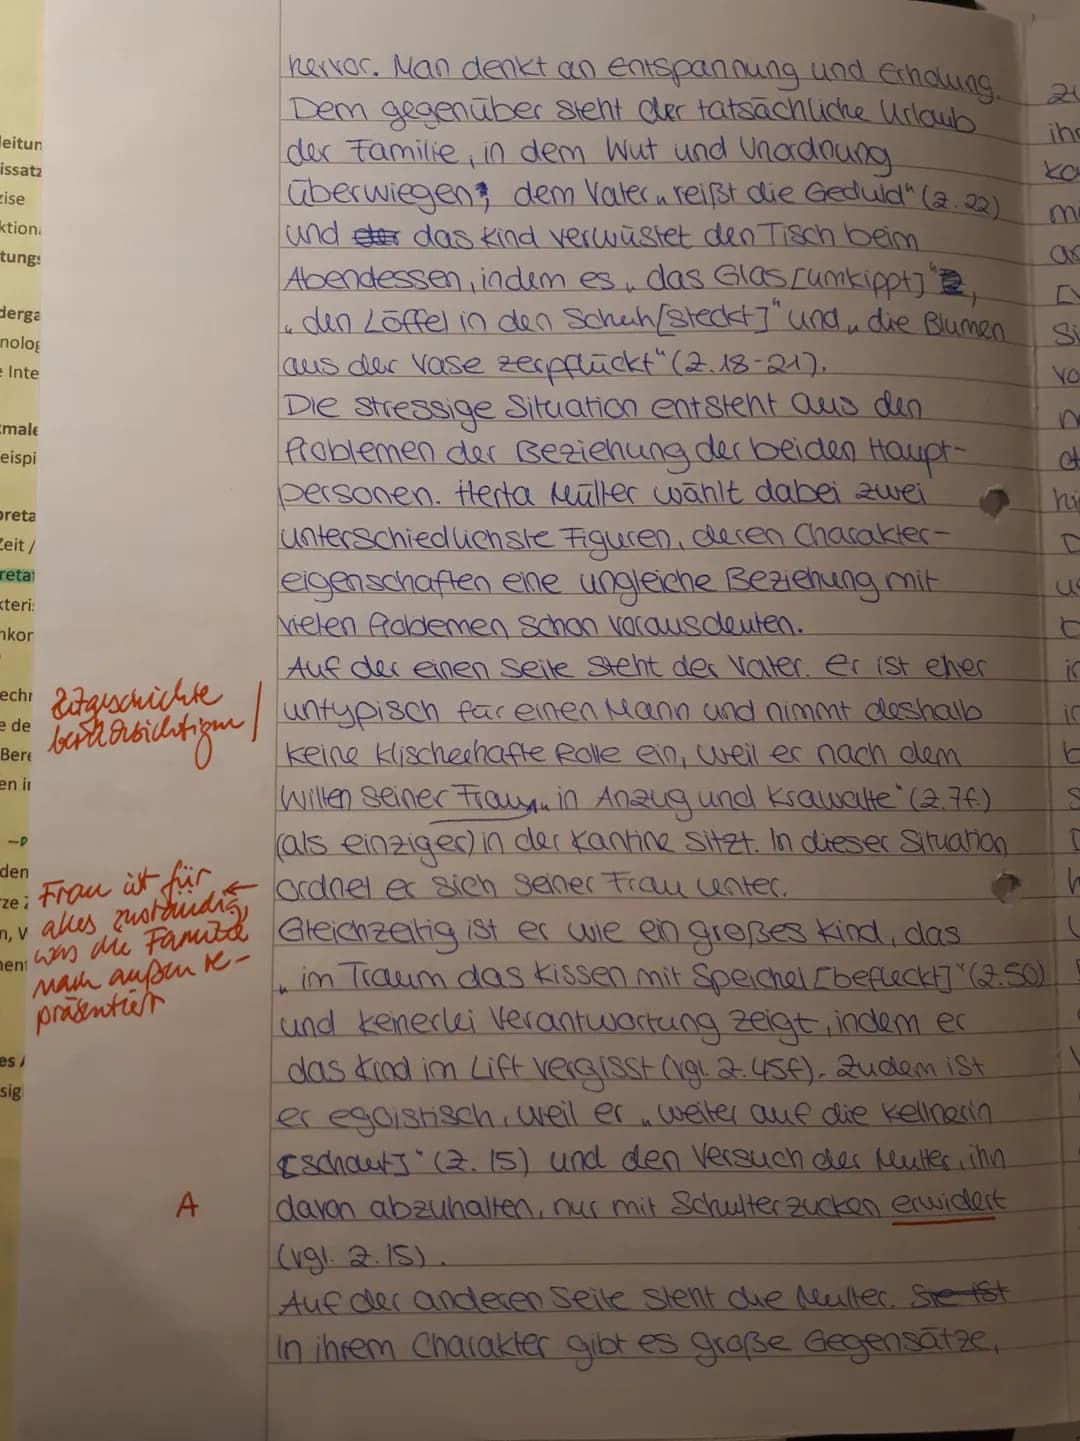 hervor. Man denkt an entspannung und Erholung.
Dem gegenüber steht der tatsächliche Urlaub
der Familie, in dem Wut und Unordnung
überwiegen; dem Vater „reißt die Geduld" (Z. 22)
und das Kind verwüstet den Tisch beim
Abendessen, indem es „das Glas [umkippt]",
„den Löffel in den Schuh [steckt]" und „die Blumen
aus der Vase zerpflückt" (Z. 18-21).
Die stressige Situation entsteht aus den
Problemen der Beziehung der beiden Haupt-
personen. Herta Müller wählt dabei zwei
unterschiedlichste Figuren, deren Charakter-
eigenschaften eine ungleiche Beziehung mit
vielen Problemen schon vorausdeuten.
Auf der einen Seite steht der Vater. Er ist eher
untypisch für einen Mann und nimmt deshalb
keine klischeehafte Rolle ein, weil er nach dem
Willen seiner Frau „in Anzug und Krawatte" (Z. 7f.)
(als einziger) in der Kantine sitzt. In dieser Situation
ordnet er sich seiner Frau unter.
Gleichzeitig ist er wie ein großes Kind, das
„im Traum das Kissen mit Speichel [befleckt]" (Z. 50)
und keinerlei Verantwortung zeigt, indem er
das Kind im Lift vergisst (vgl. Z. 45f). Zudem ist
er egoistisch, weil er „weiter auf die Kellnerin
[schaut]" (Z. 15) und den Versuch der Mutter, ihn
davon abzuhalten, nur mit Schulterzucken erwidert
(vgl. Z. 15).
Auf der anderen Seite steht die Mutter. Sie ist
In ihrem Charakter gibt es große Gegensätze,
Zeitgeschichte
berücksichtigen
Frau ist für
alles zuständig,
was die Familie
nach außen re-
präsentiert
A